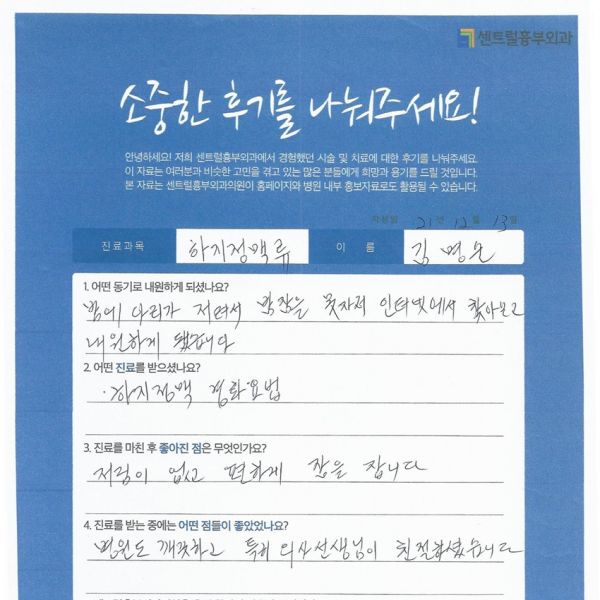 센트럴흉부외과
소중한 후기를 나눠주세요!
안녕하세요! 저희 센트럴흉부외과에서 경험했던 시술 및 치료에 대한 후기를 나눠주세요.
이 자료는 여러분과 비슷한 고민을 겪고 있는 많은 분들에게 희망과 용기를 드릴 것입니다.
본 자료는 센트럴흉부외과의원이 홈페이지와 병원 내부 홍보자료로도 활용될 수 있습니다.
작성일 21년 12월 13일
진료과목 하지정맥류 이 름 김명순
1. 어떤 동기로 내원하게 되셨나요?
밤에 다리가 저려서 밤잠을 못자서 인터넷에서 찾아보고
내원하게 됐습니다
2. 어떤 진료를 받으셨나요?
·하지정맥 경화요법
3. 진료를 마친 후 좋아진 점은 무엇인가요?
저림이 없고 편하게 잠을 잡니다
4. 진료를 받는 중에는 어떤 점들이 좋았었나요?
병원도 깨끗하고 특히 의사선생님이 친절하셨습니다